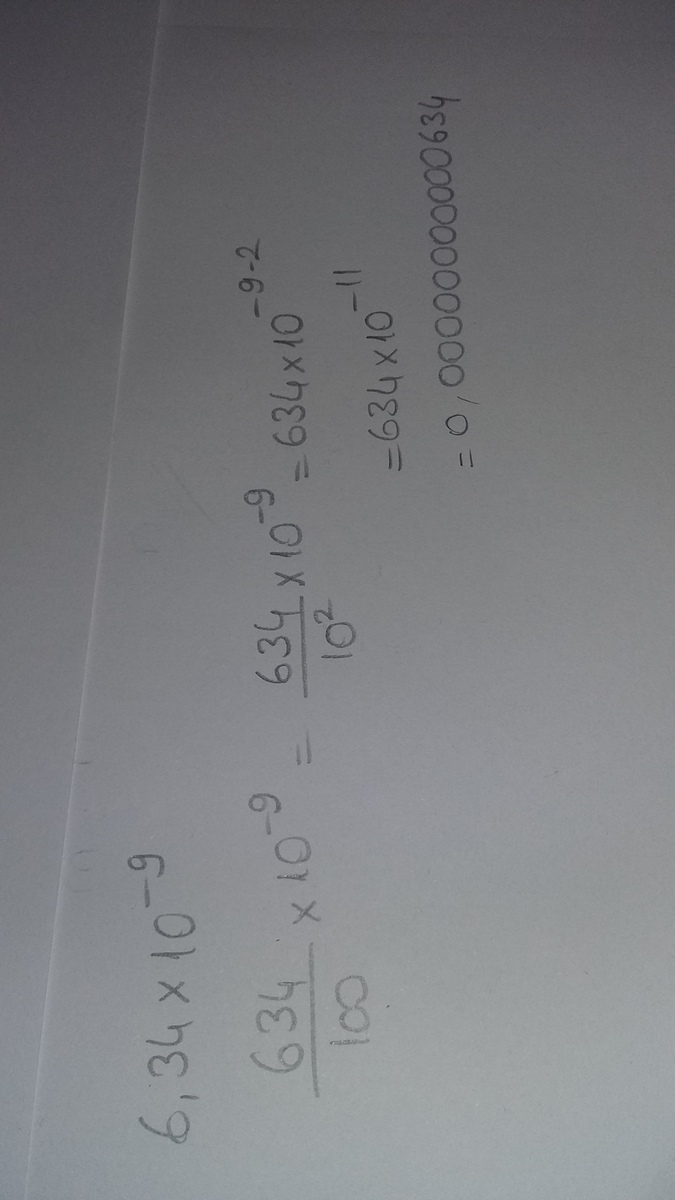 6,34 x 10⁻⁹
634/100 x 10⁻⁹ = 634/10² x 10⁻⁹ = 634 x 10⁻⁹⁻²
= 634 x 10⁻¹¹
= 0,00000000000634